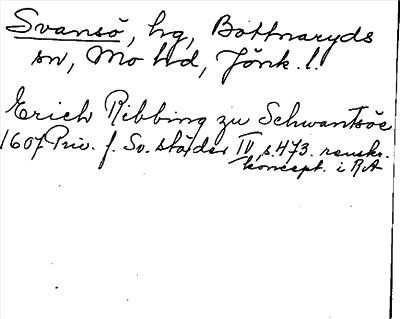 Svansö, hg, Bottnaryds
sn, Mo hd, Jönk. l.
Erich Ribbing zu Schwantsöe
1607 Priv. f. Sv. städer IV, s. 473. renskr.
koncept. i RA